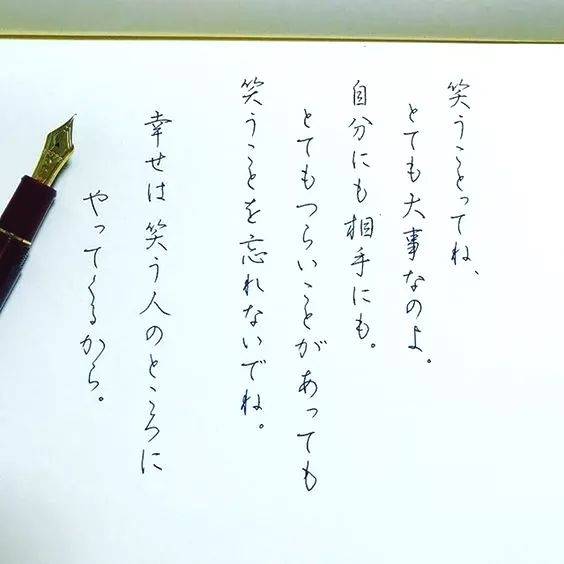 笑うことってね、
とても大事なのよ。
自分にも相手にも。
とてもつらいことがあっても
笑うことを忘れないでね。
幸せは笑う人のところに
やってくるから。